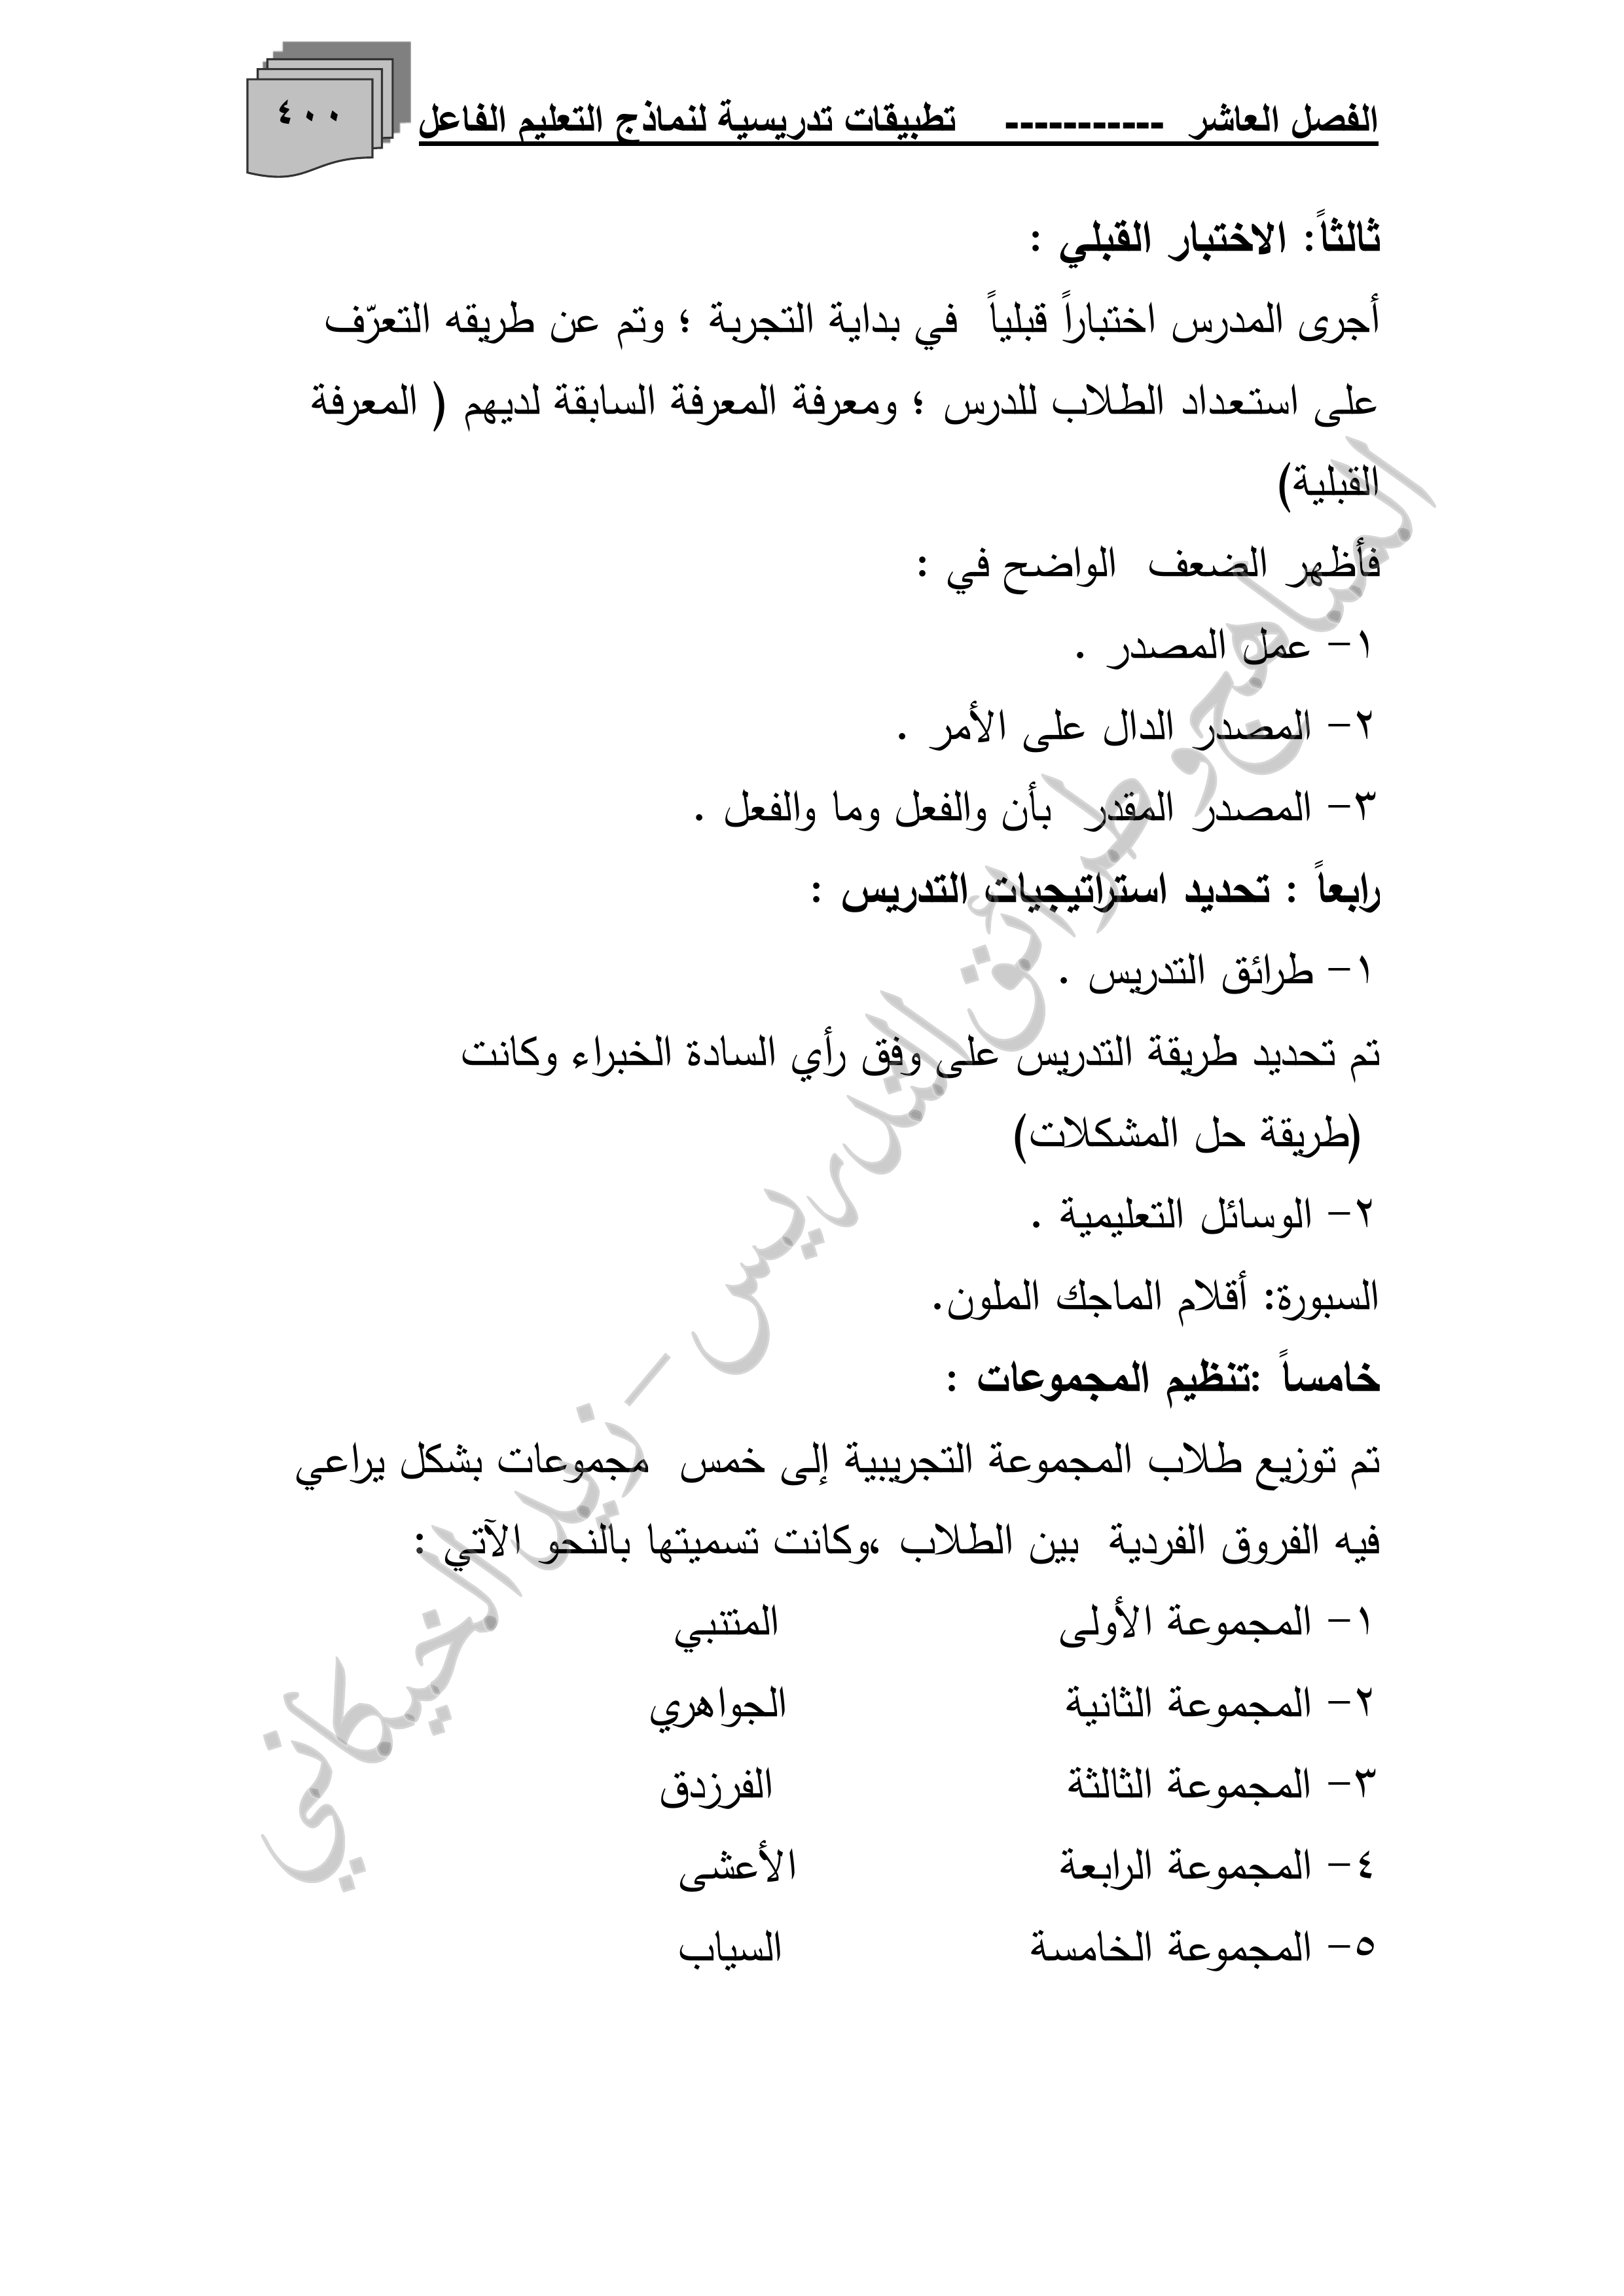 الفصل العاشر ----------- تطبيقات تدريسية لنماذج التعليم الفاعل
٤٠٠
ثالثاً: الاختبار القبلي :
أجرى المدرس اختباراً قبلياً في بداية التجربة ؛ وتم عن طريقه التعرّف
على استعداد الطلاب للدرس ؛ ومعرفة المعرفة السابقة لديهم ( المعرفة
القبلية)
فأظهر الضعف الواضح في :
١- عمل المصدر .
٢- المصدر الدال على الأمر .
٣- المصدر المقدر بأن والفعل وما والفعل .
رابعاً : تحديد استراتيجيات التدريس :
١- طرائق التدريس .
تم تحديد طريقة التدريس على وفق رأي السادة الخبراء وكانت
(طريقة حل المشكلات)
٢- الوسائل التعليمية .
السبورة: أقلام الماجك الملون.
خامساً :تنظيم المجموعات :
تم توزيع طلاب المجموعة التجريبية إلى خمس مجموعات بشكل يراعي
فيه الفروق الفردية بين الطلاب ،وكانت تسميتها بالنحو الآتي :
١- المجموعة الأولى المتنبي
٢- المجموعة الثانية الجواهري
٣- المجموعة الثالثة الفرزدق
٤- المجموعة الرابعة الأعشى
٥- المجموعة الخامسة السياب
المناهج و طرائق التدريس - زيد الخيكاني